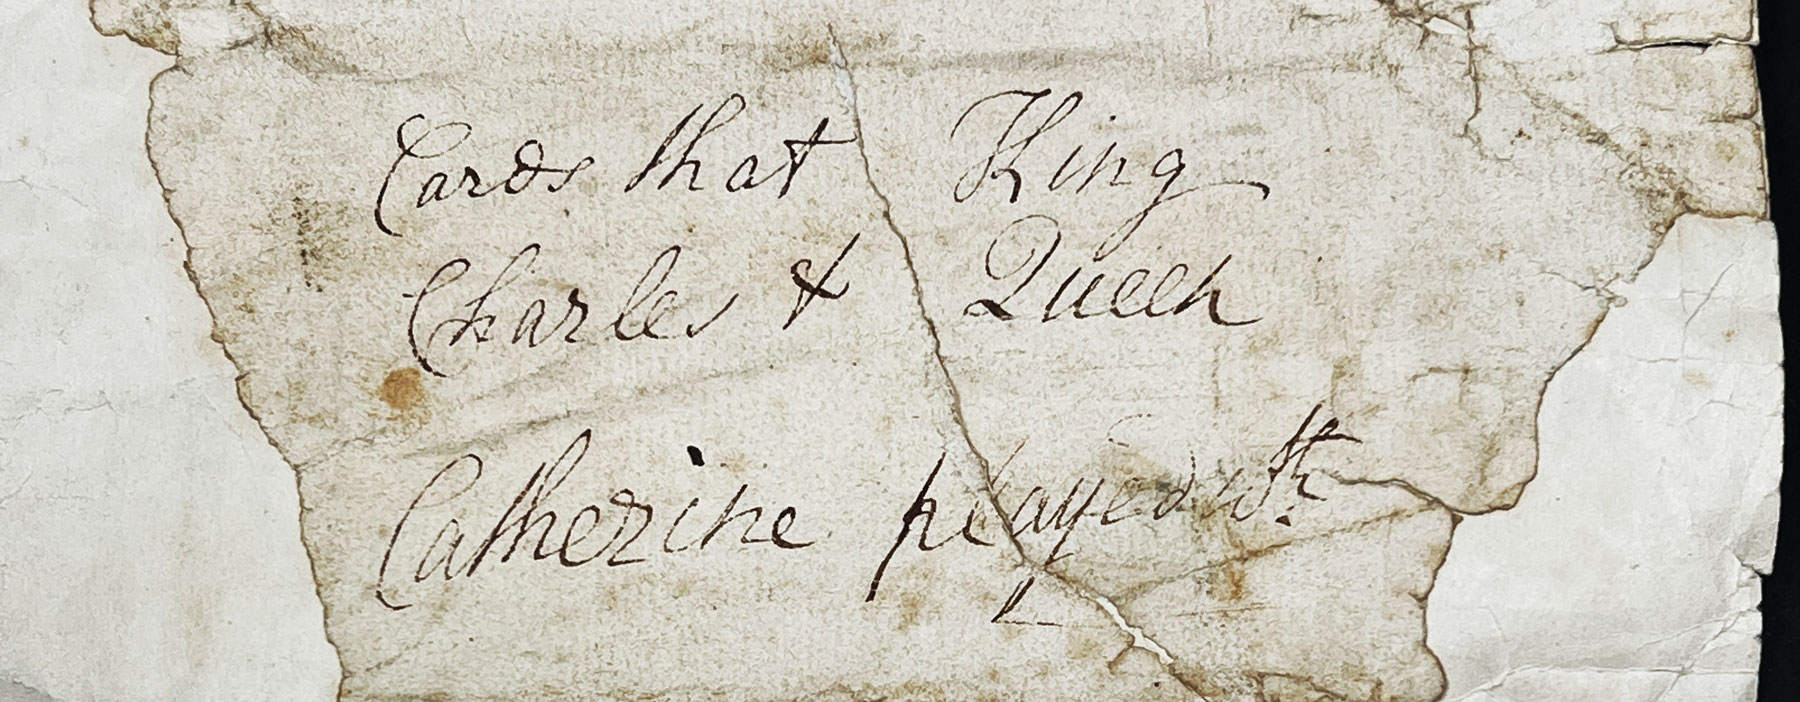 Cards that King
Charles & Queen
Catherine played wth